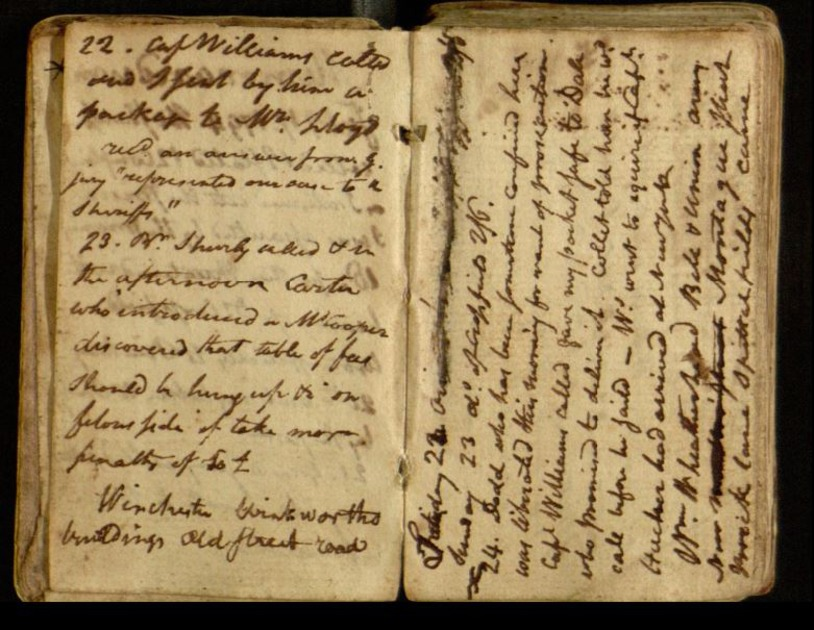 22. Capt Williams called
and I sent by him a
packet to Mr. Lloyd
recd an answer from g.
jury "represented our case to the
Sheriffs"
23. Mr. called & in
the afternoon Carter
who introduced a Mr Cooper
discovered that table of fees
should be hung up &c on
felons side if take more
penalty of 50 £
Winchester Winkworths
buildings Old Street road
22
Sunday 23 do. of 2/6.
24. Dodd who has been confined here
was liberated this morning for want of prosecution
Capt Williams called gave my packet safe to Dale
who promised to deliver it. Collet told him he wd
call before he said – Wms. went to enquire if Capt.
had arrived at New York
Wm. Weatherhead Bell & Union
New Montague Street
Brick lane Spittal fields came